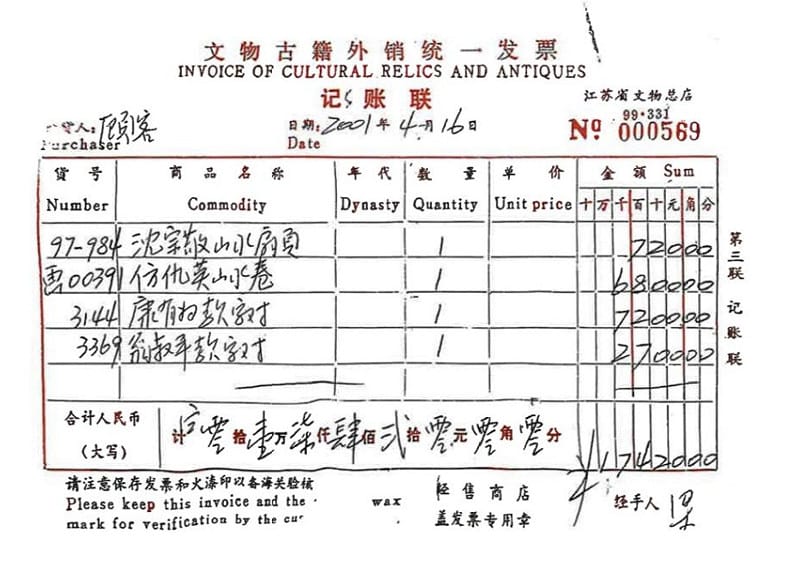 文物古籍外销统一发票
INVOICE OF CULTURAL RELICS AND ANTIQUES
记账联
江苏省文物总店
99·331
货人: 顾客
Purchaser
日期: 2001年4月16日
Date
№ 000569
货号 商品名称 年代 数量 单价 金额 Sum
Number Commodity Dynasty Quantity Unit price 十万千百十元角分
97-984 沈宗敬山水扇页 1 72000
00391 仿仇英山水卷 1 680000
3144 康有为款字对 1 720000
3369 翁叔平款字对 1 270000
合计人民币
(大写)
计 零拾壹万柒仟肆佰贰拾零元零角零分 ¥1742000
第三联 记账联
请注意保存发票和火漆印以备海关验核
Please keep this invoice and the wax
mark for verification by the cus
经售商店
盖发票专用章
经手人 梁